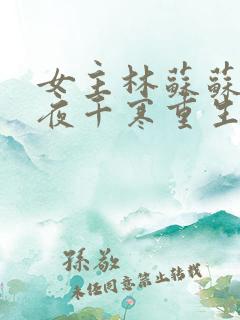 女主林蘇蘇
夜千寒重生
孫敬
未经同意禁止转载